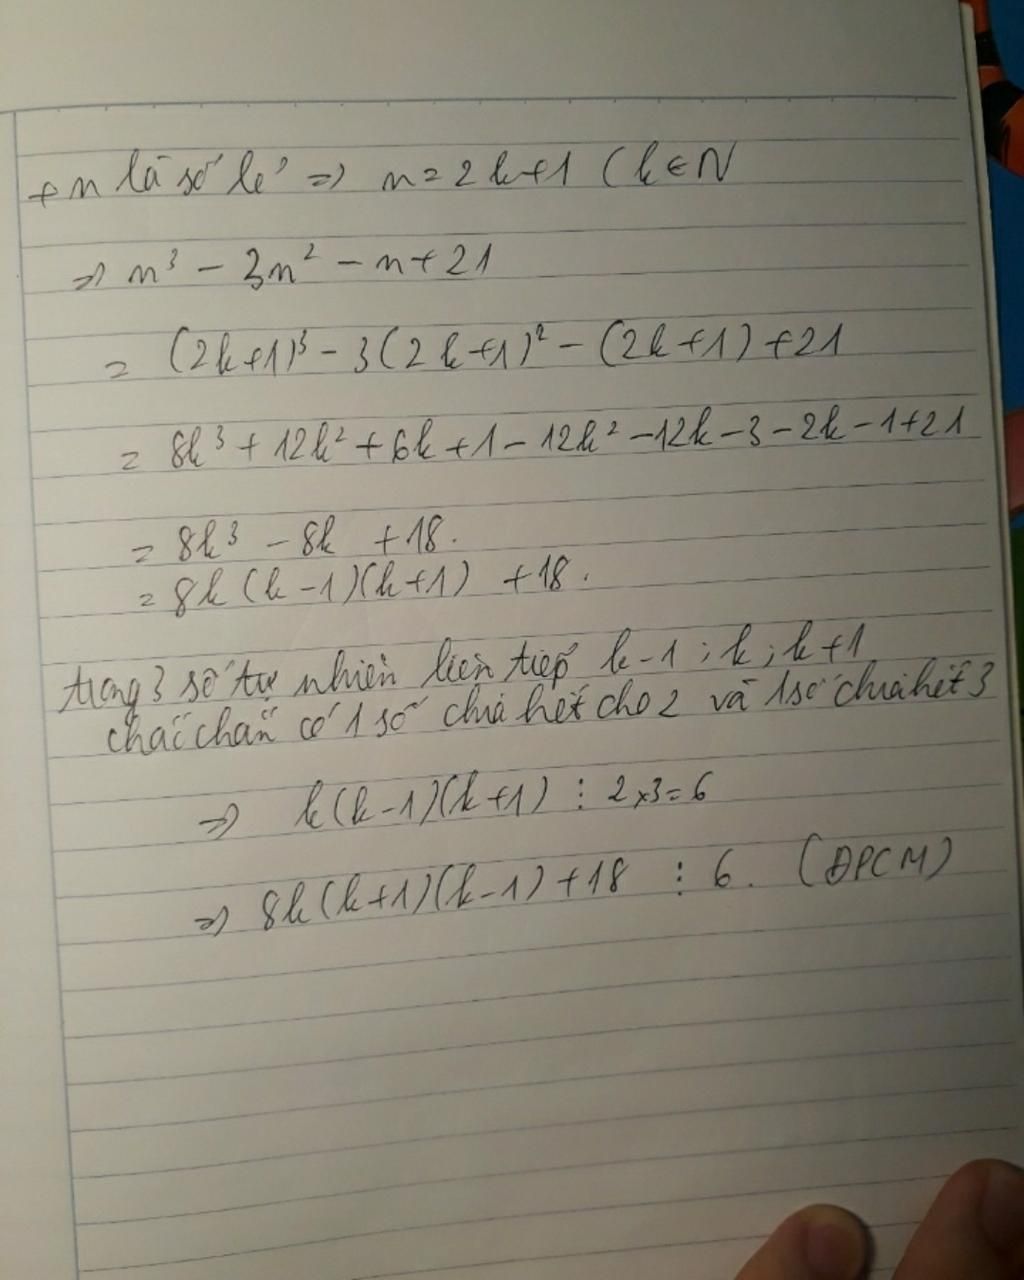 + n là số lẻ => n = 2k+1 (k ∈ N
=> n³ - 3n² - n + 21
= (2k+1)³ - 3(2k+1)² - (2k+1) + 21
= 8k³ + 12k² + 6k + 1 - 12k² - 12k - 3 - 2k - 1 + 21
= 8k³ - 8k + 18.
= 8k(k-1)(k+1) + 18.
trong 3 số tự nhiên liên tiếp k-1; k; k+1
chắc chắn có 1 số chia hết cho 2 và 1 số chia hết 3
=> k(k-1)(k+1) ⋮ 2x3=6
=> 8k(k+1)(k-1) + 18 ⋮ 6. (ĐPCM)